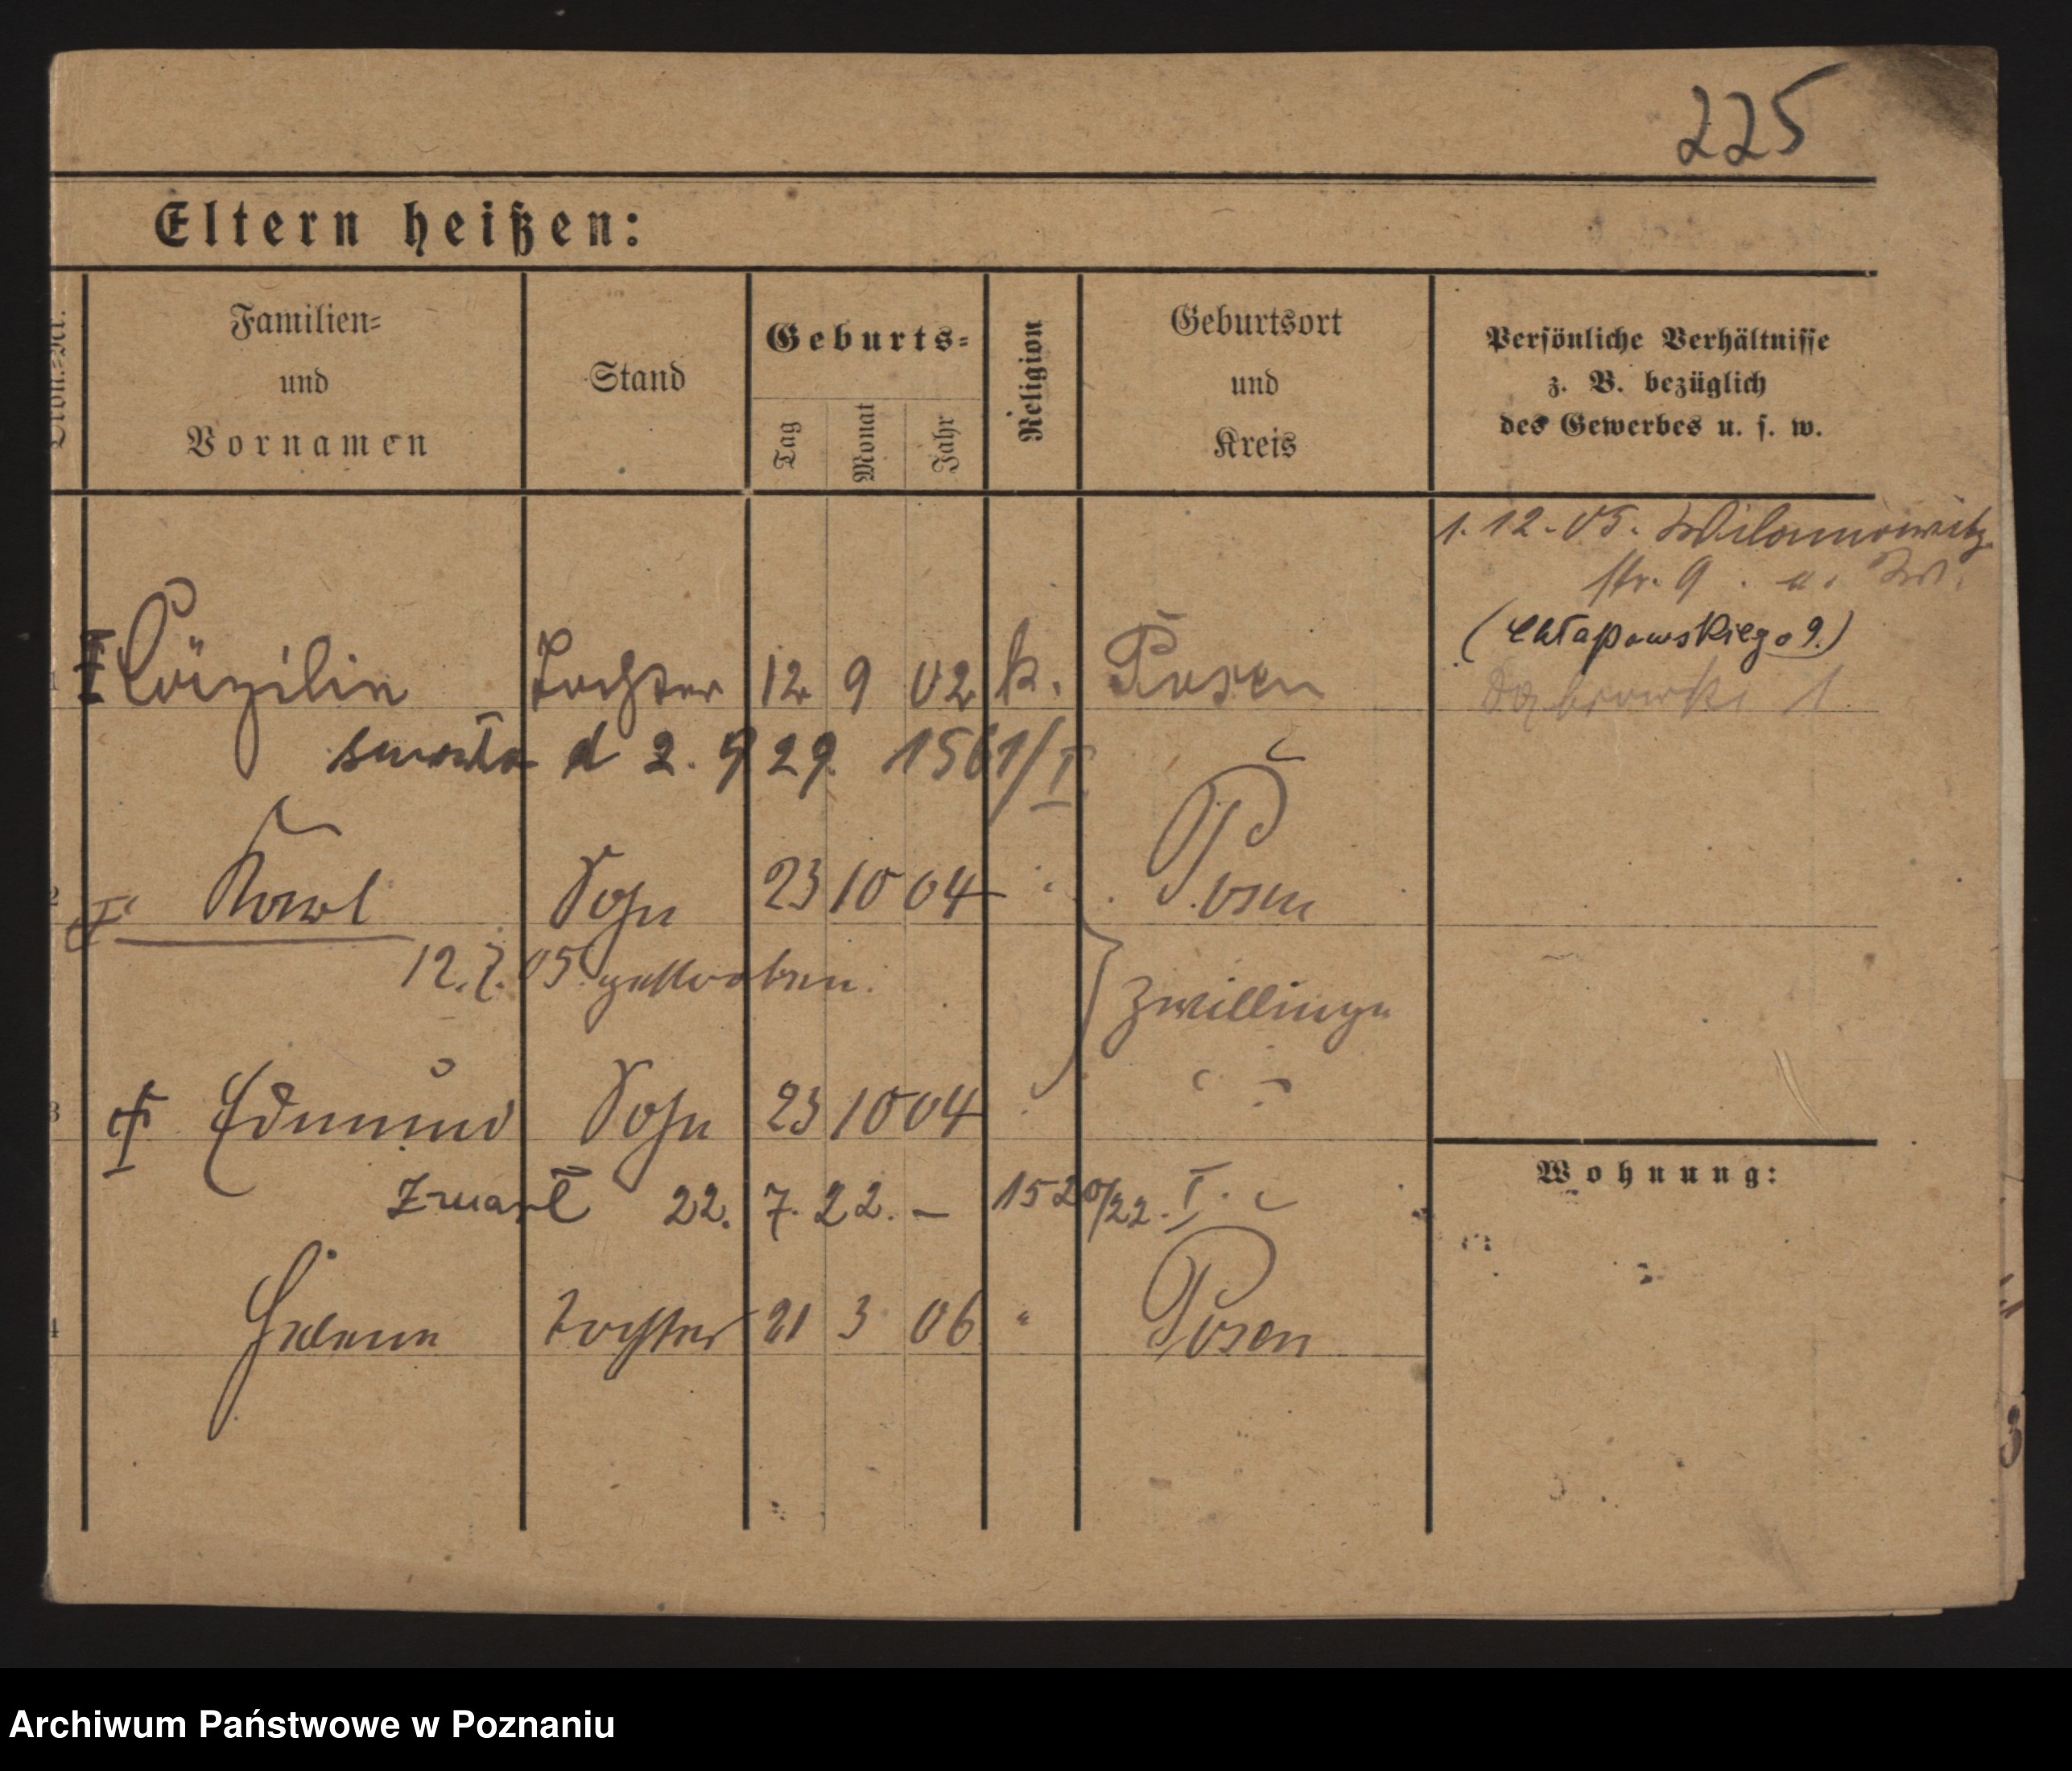 225
Eltern heißen:
Ordn.-Nr.
Familien-
und
Vornamen
Stand
Geburts-
Tag
Monat
Jahr
Religion
Geburtsort
und
Kreis
Persönliche Verhältnisse
z. B. bezüglich
des Gewerbes u. s. w.
1. 12. 05. Wilamowitz
str. 9
(Chłapowskiego 9.)
Dąbrowski 1
1 Cäzilia Tochter 12 9 02 k. Posen
zmarła d 2. 9 29 1561/I
2 Karl Sohn 23 10 04 " Posen
12. 7. 05 gestorben.
Zwillinge
3 Edmund Sohn 23 10 04
zmarł 22. 7. 22. – 1520/22. I.
Wohnung:
4 Helene Tochter 21 3 06 " Posen
Archiwum Państwowe w Poznaniu